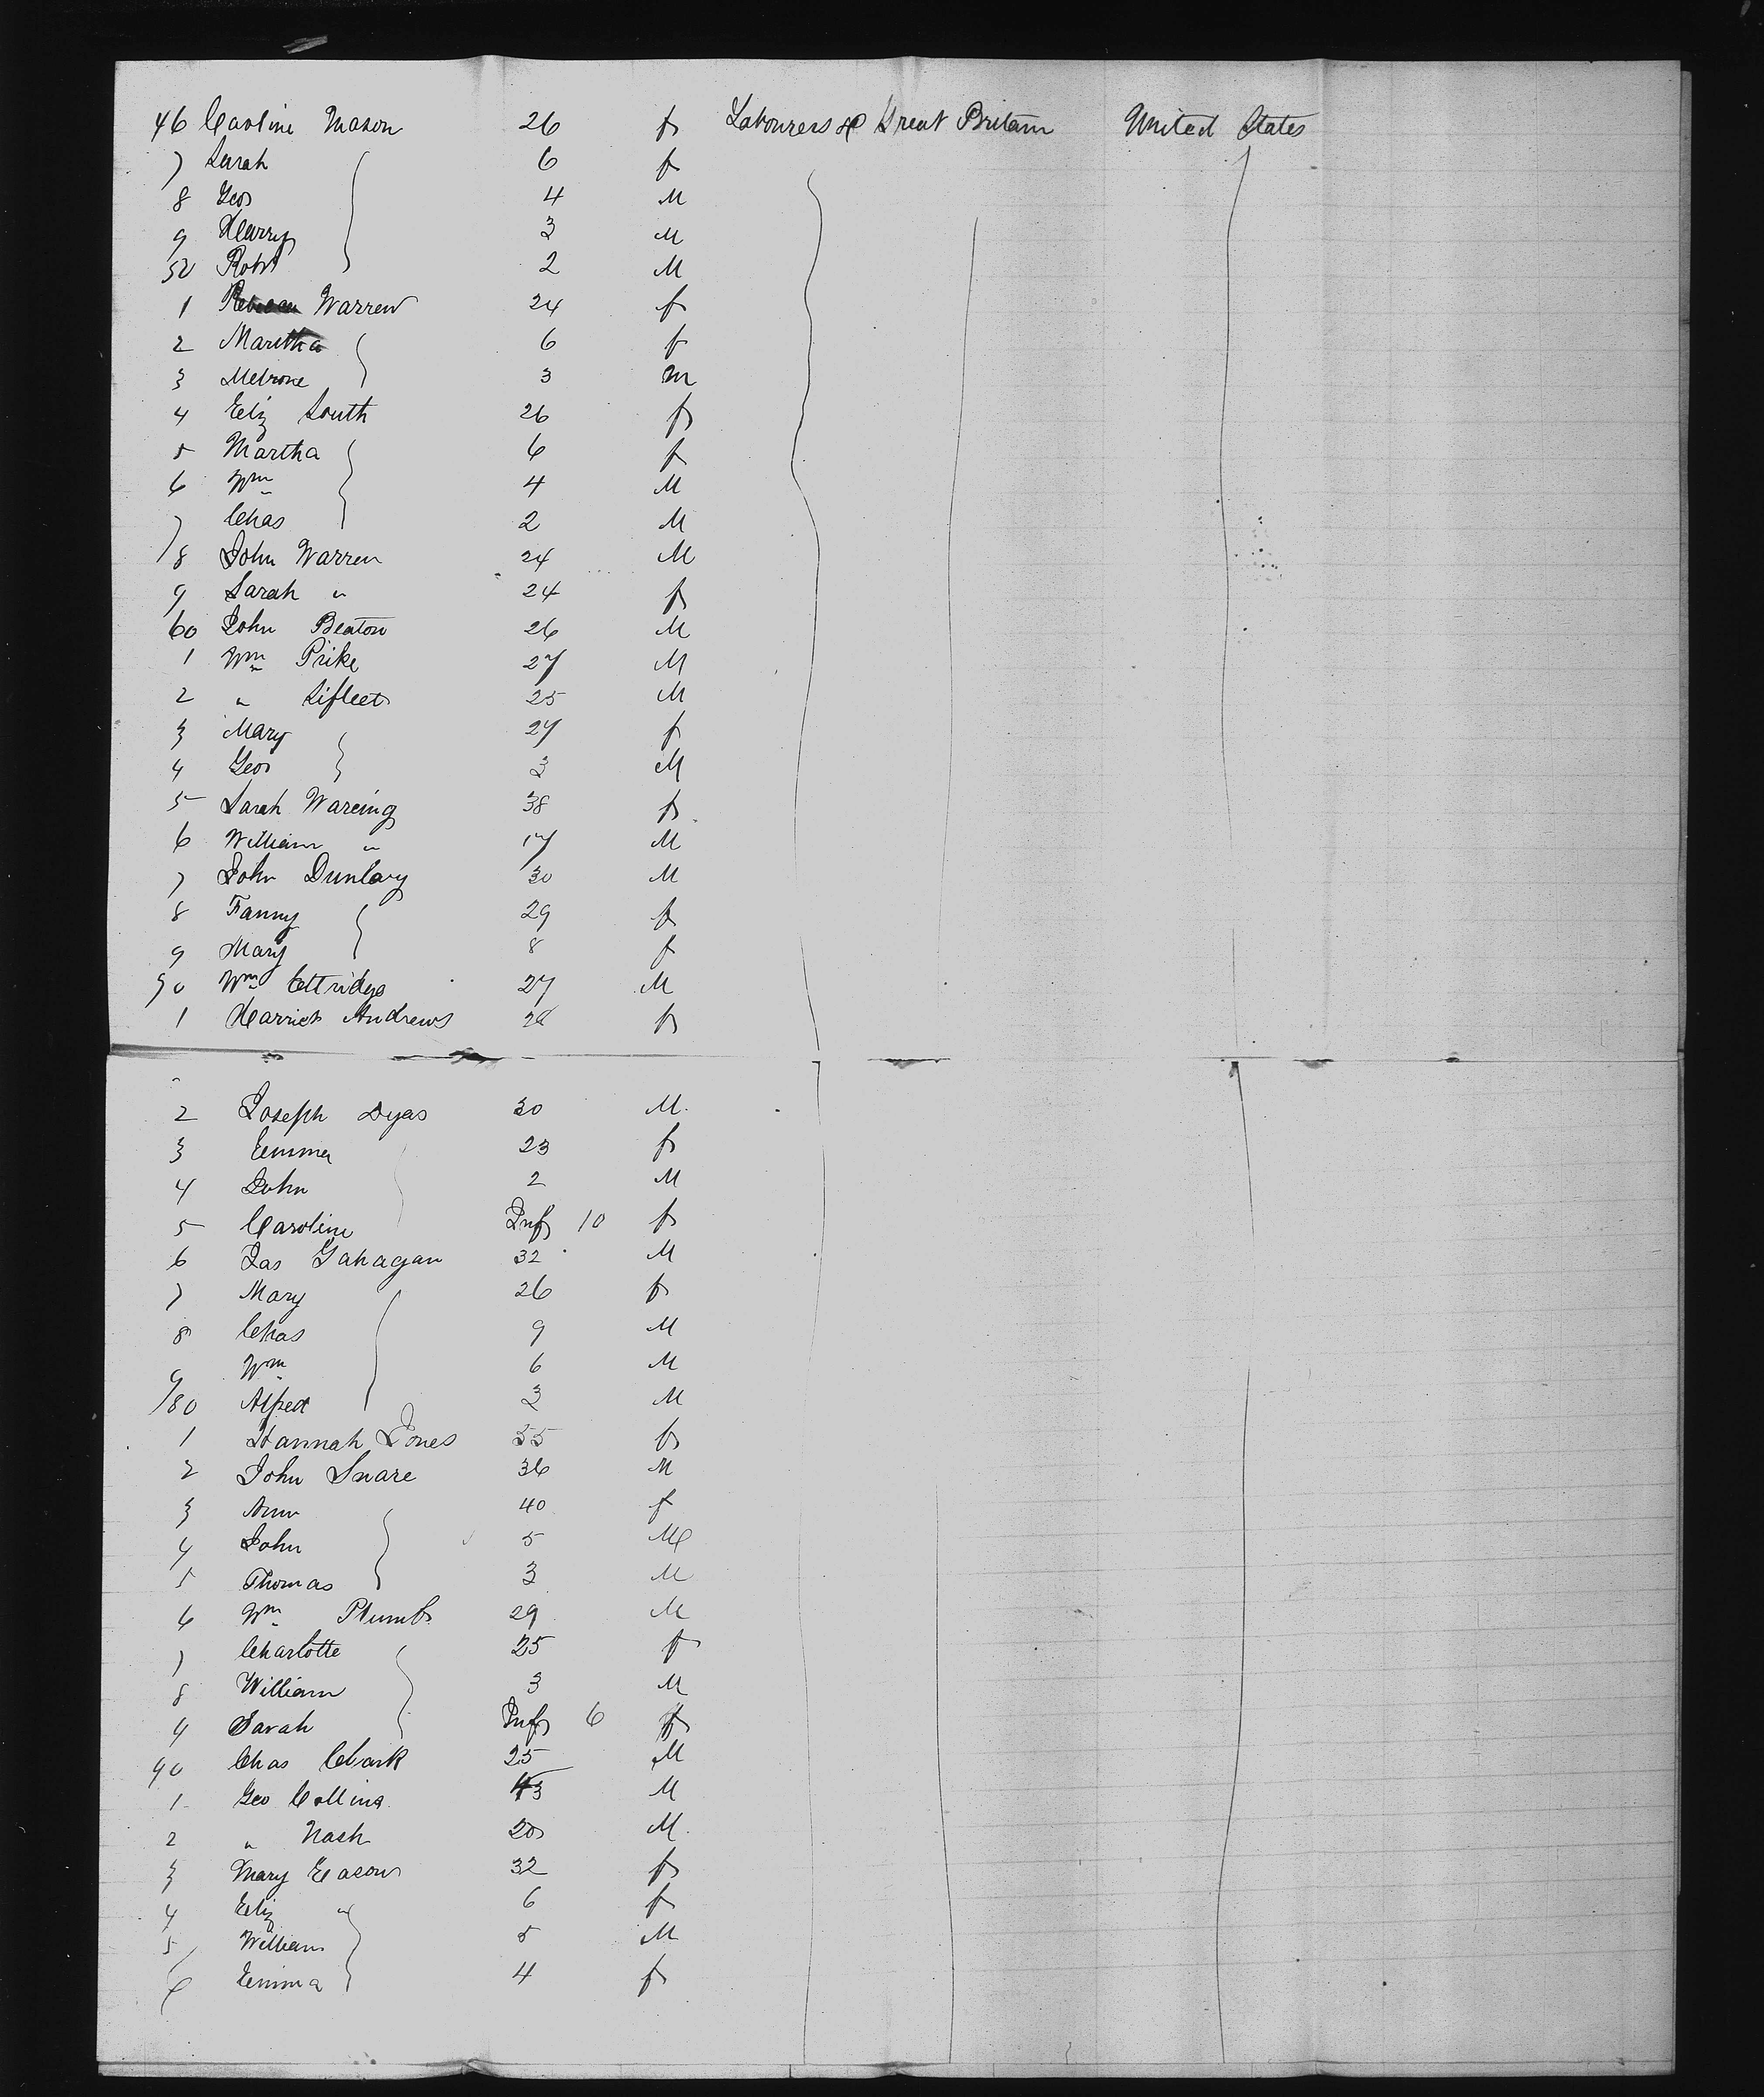 46 Caroline Mason 26 f Labourers &c Great Britain United States
7 Sarah 6 f
8 Geo 4 M
9 Harry 3 M
50 Robt 2 M
1 Rebecca Warren 24 f
2 Martha 6 f
3 Melrose 3 m
4 Eliz South 26 f
5 Martha 6 f
6 Wm 4 M
7 Chas 2 M
8 John Warren 24 M
9 Sarah " 24 f
60 John Beaton 26 M
1 Wm Prike 27 M
2 " Sifleet 25 M
3 Mary 27 f
4 Geo 3 M
5 Sarah Wareing 38 f
6 William " 17 M
7 John Dunlavy 30 M
8 Fanny 29 f
9 Mary 8 f
70 Wm Ettridge 27 M
1 Harriet Andrews f
2 Joseph Dyas 30 M
3 Emma 23 f
4 John 2 M
5 Caroline Inf 10 f
6 Jas Gahagan 32 M
7 Mary 26 f
8 Chas 9 M
9 Wm 6 M
80 Alfred 3 M
1 Hannah Jones 55 f
2 John Snare 36 M
3 Ann 40 f
4 John 5 M
5 Thomas 3 M
6 Wm Plumb 29 M
7 Charlotte 25 f
8 William 3 M
9 Sarah Inf 6 f
90 Chas Clark 25 M
1 Geo Collins 43 M
2 " Nash 20 M
3 Mary Eason 32 f
4 Eliz " 6 f
5 William 5 M
6 Emma 4 f